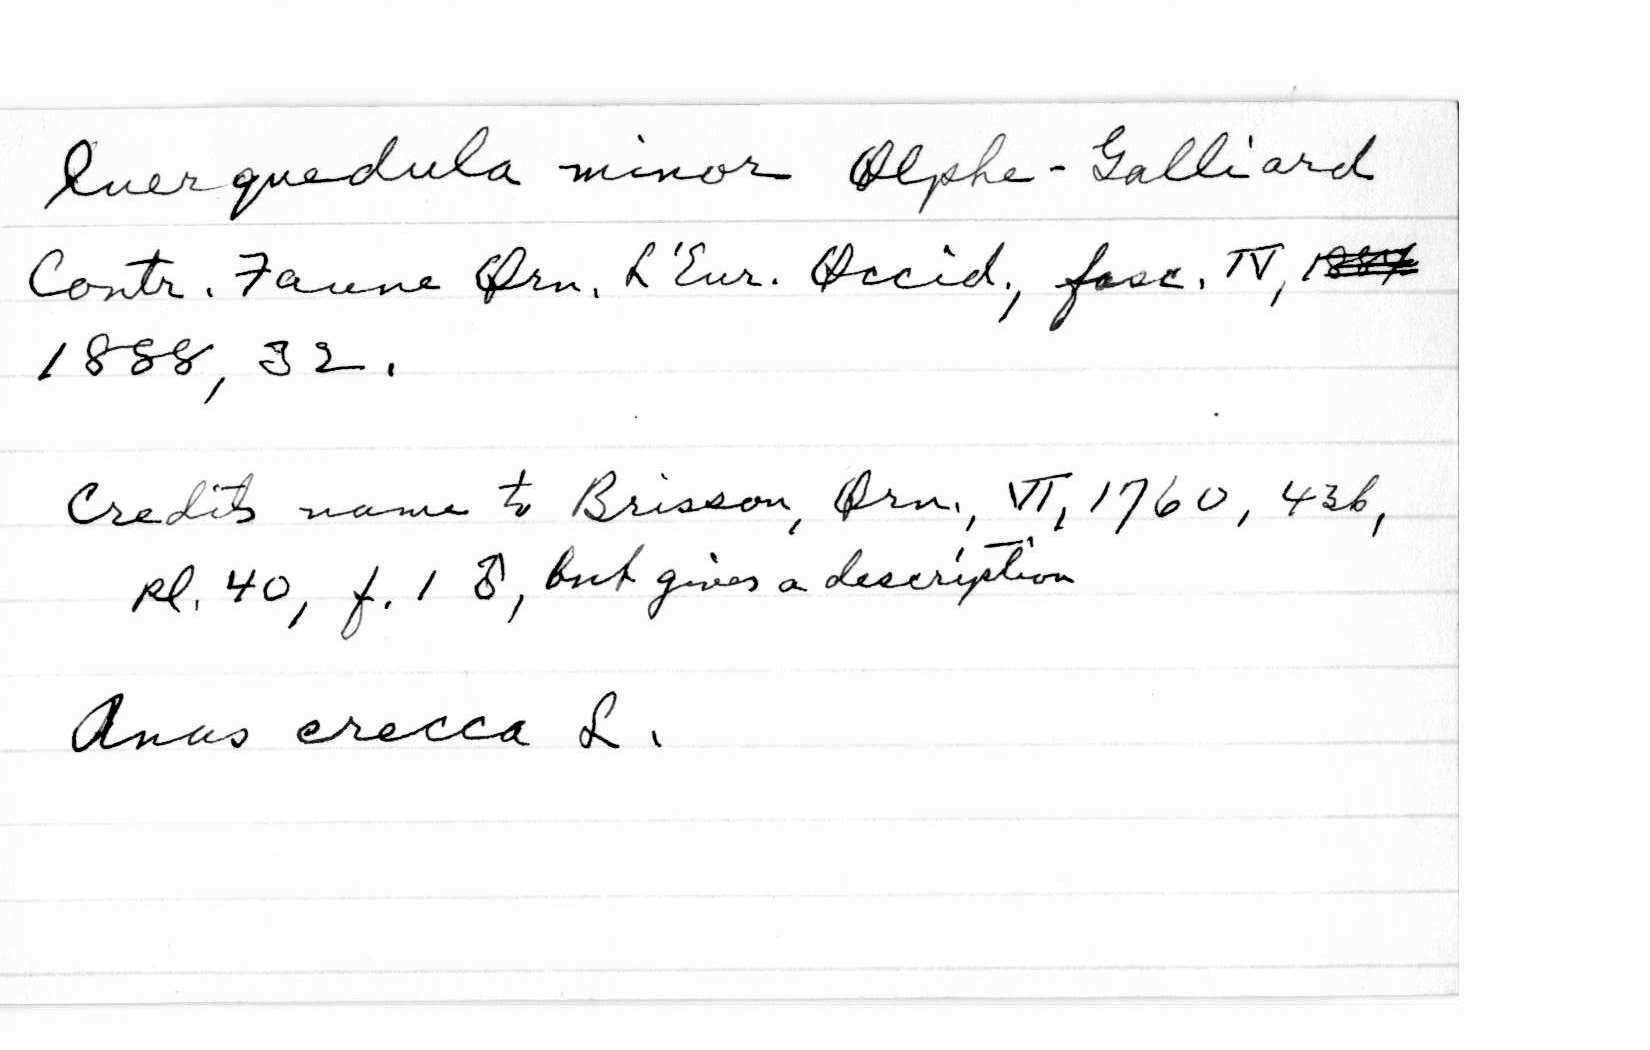 Querquedula minor Olphe-Galliard
Contr. Faune Orn. L'Eur. Occid., fasc. IV,
1888, 32.
Credits name to Brisson, Orn., VI, 1760, 436,
pl. 40, f. 1 ♂, but gives a description
Anas crecca L.